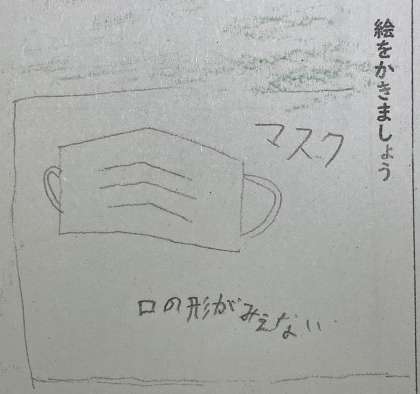 絵をかきましょう
マスク
口の形がみえない